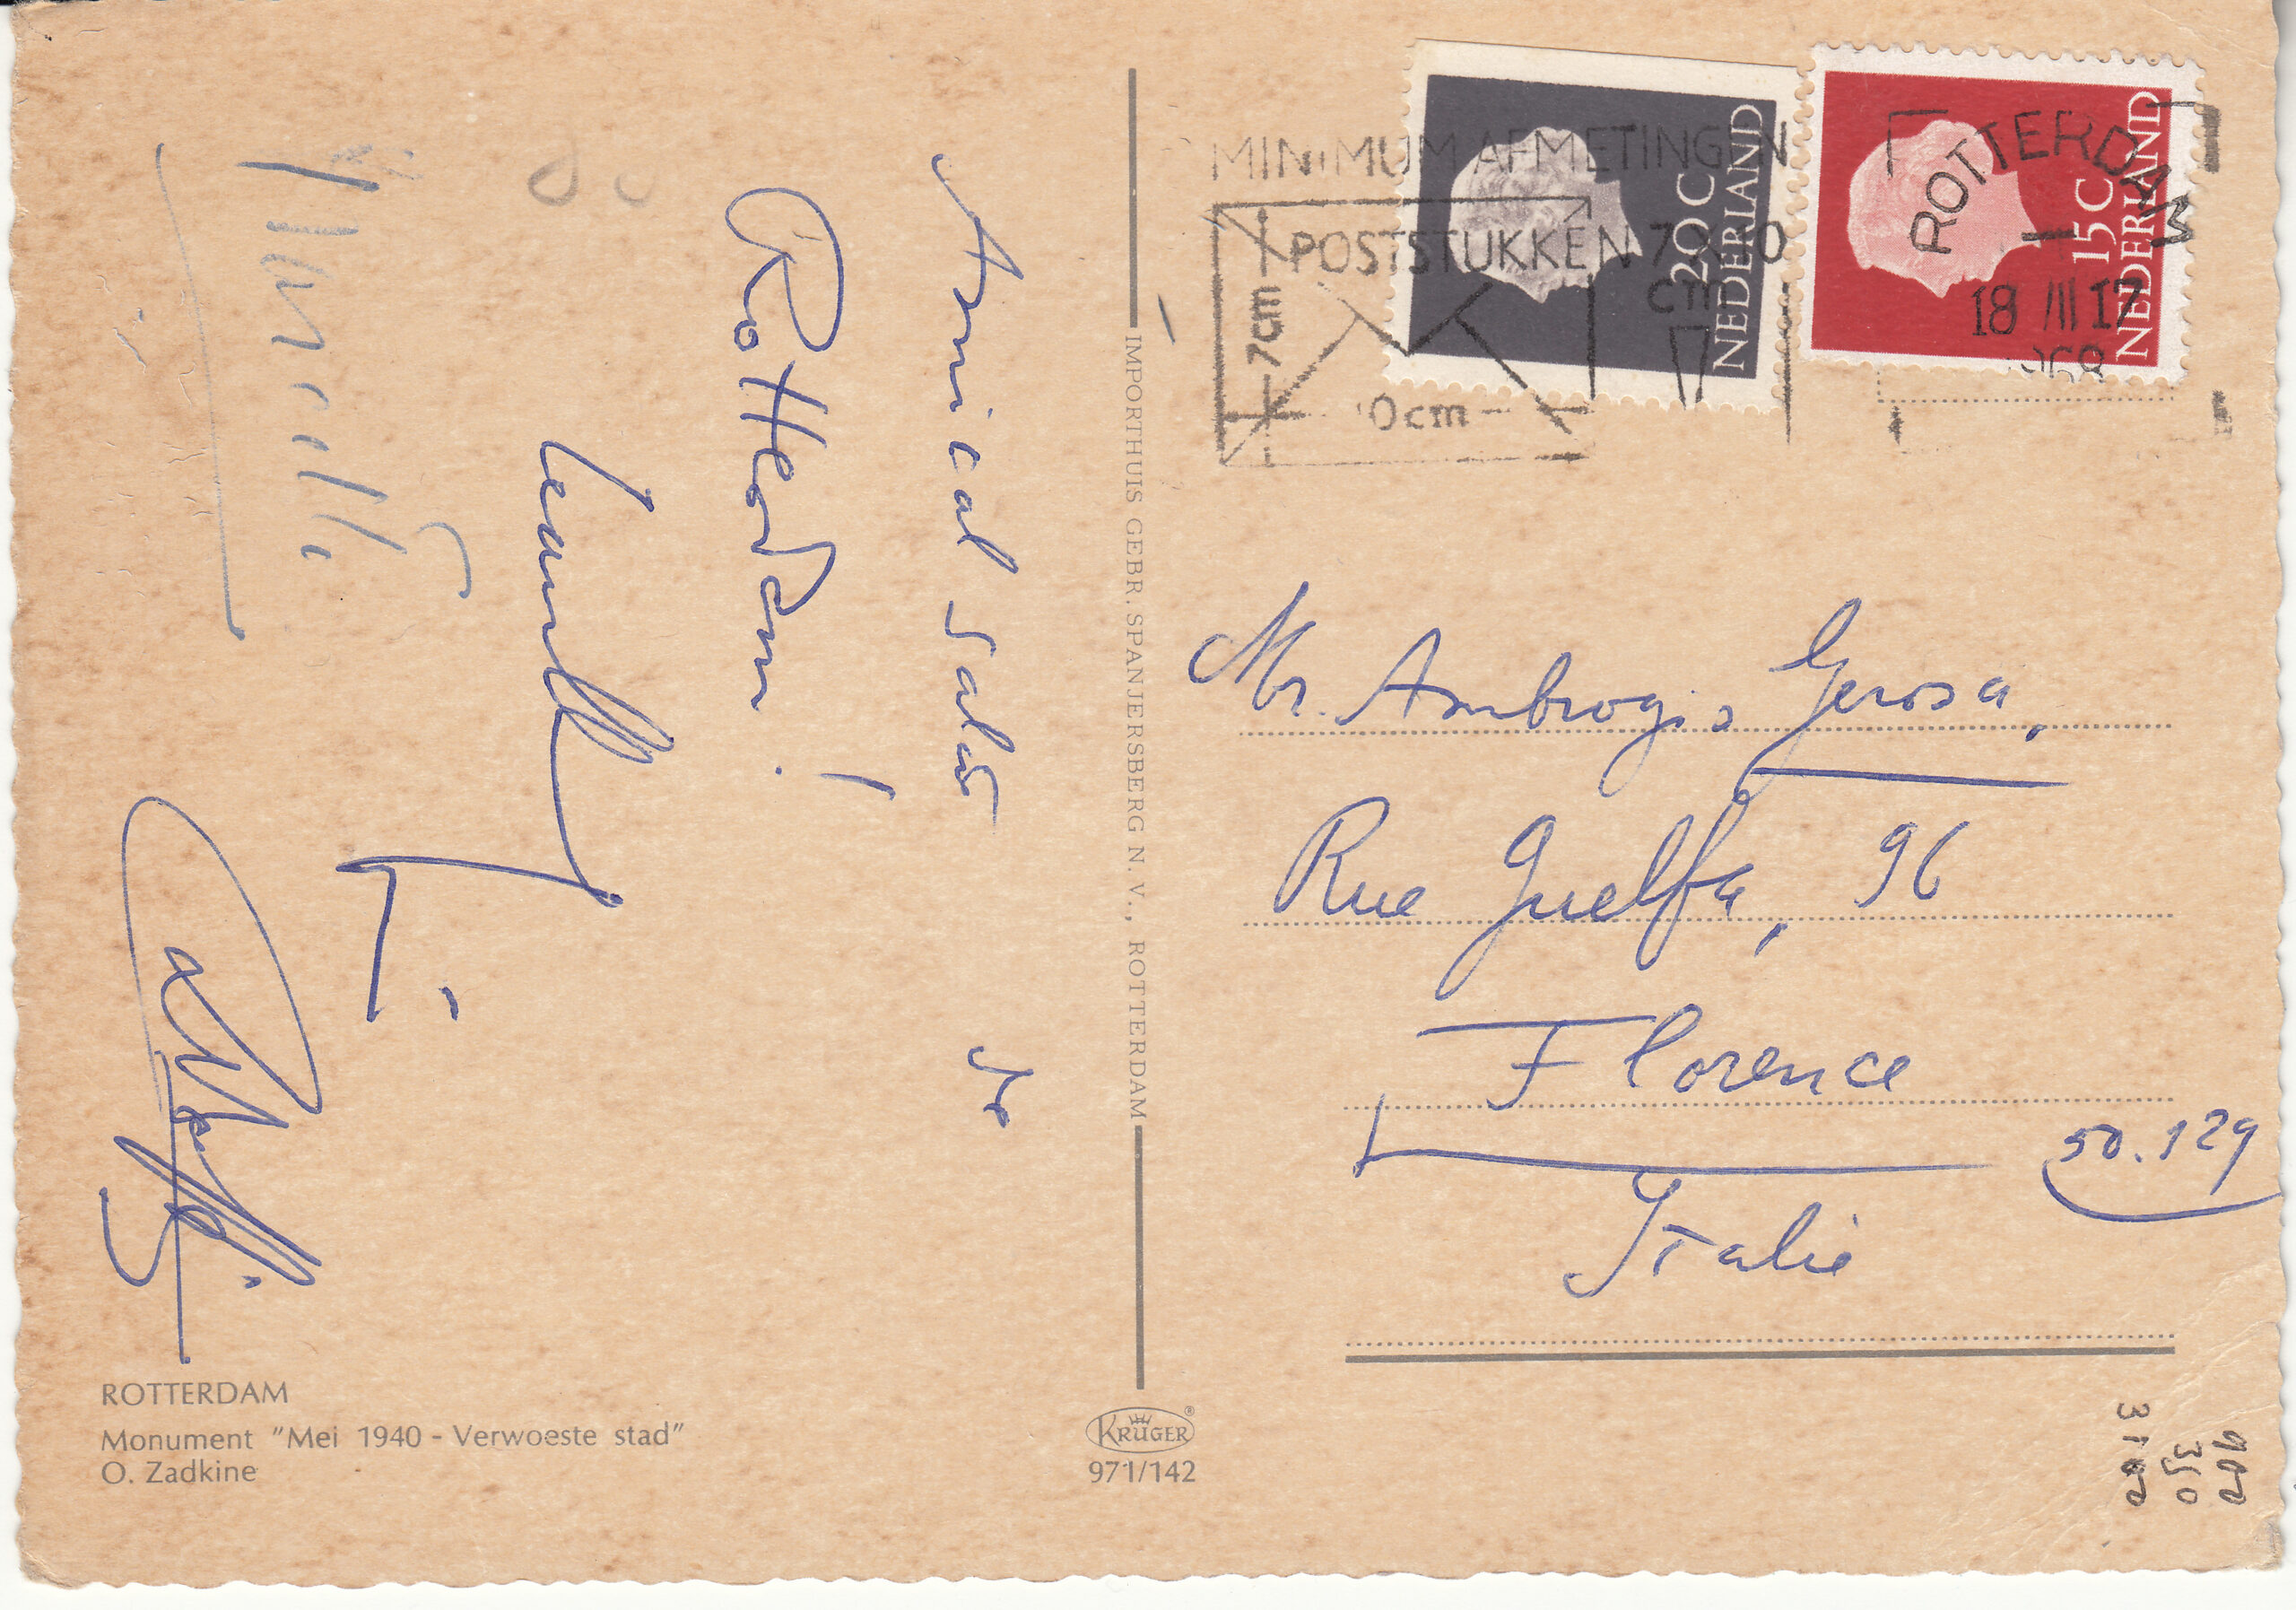 Amical salut de
Rotterdam!
ROTTERDAM
Monument "Mei 1940 - Verwoeste stad"
O. Zadkine
IMPORTHUIS GEBR. SPANJERSBERG N.V., ROTTERDAM
KRÜGER
971/142
MINIMUM AFMETINGEN
POSTSTUKKEN 7 X 10
cm
7cm
0cm
20 C
NEDERLAND
15 C
NEDERLAND
ROTTERDAM
18 III 17
Mr. Ambrogio Gerosa,
Rue Guelfa, 96
Florence
50.129
Italie
350